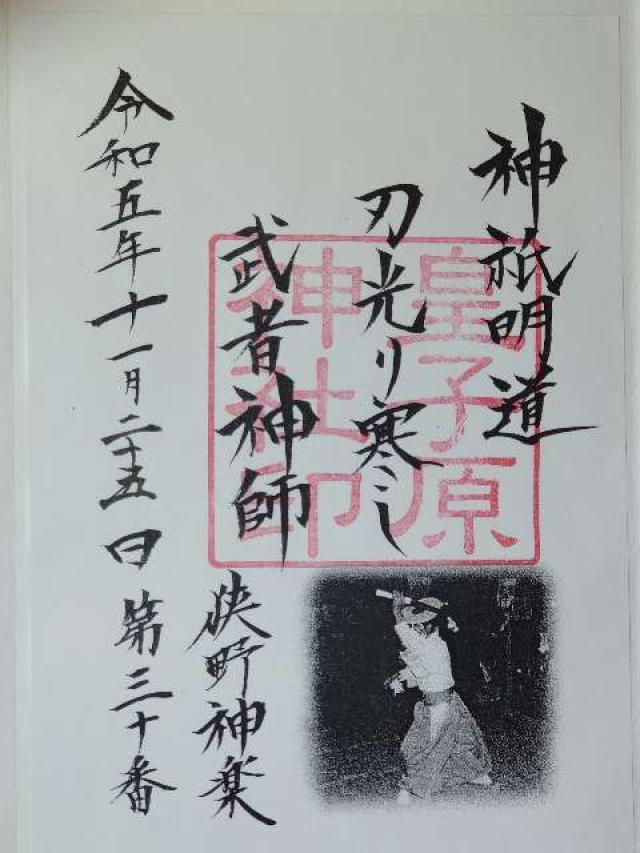 神祇明道
刃光り寒こし
武者神師
狭野神楽
令和五年十一月二十五日 第三十番
皇子原
神社印